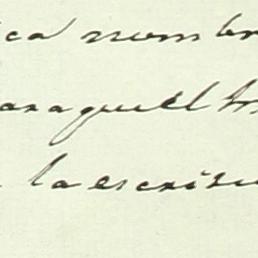 ica nombr
araquel tr
la escritu